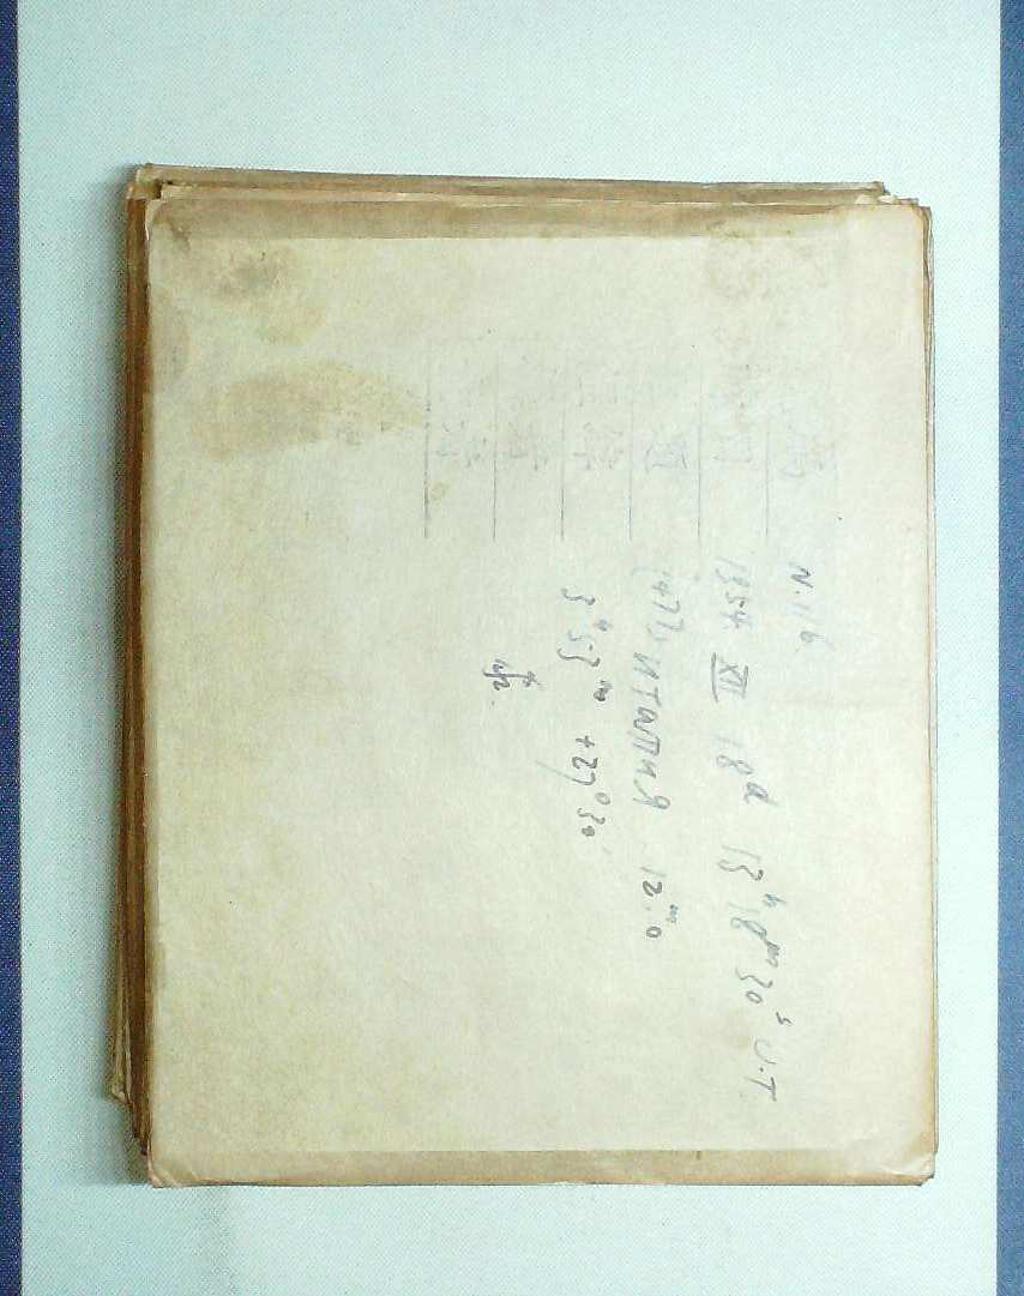 N. 116
1954 XII 18ᵈ 13ʰ 18ᵐ 30ˢ U.T
(477) ИТАЛИЯ 12.ᵐ0
3ʰ 53ᵐ +27°30'